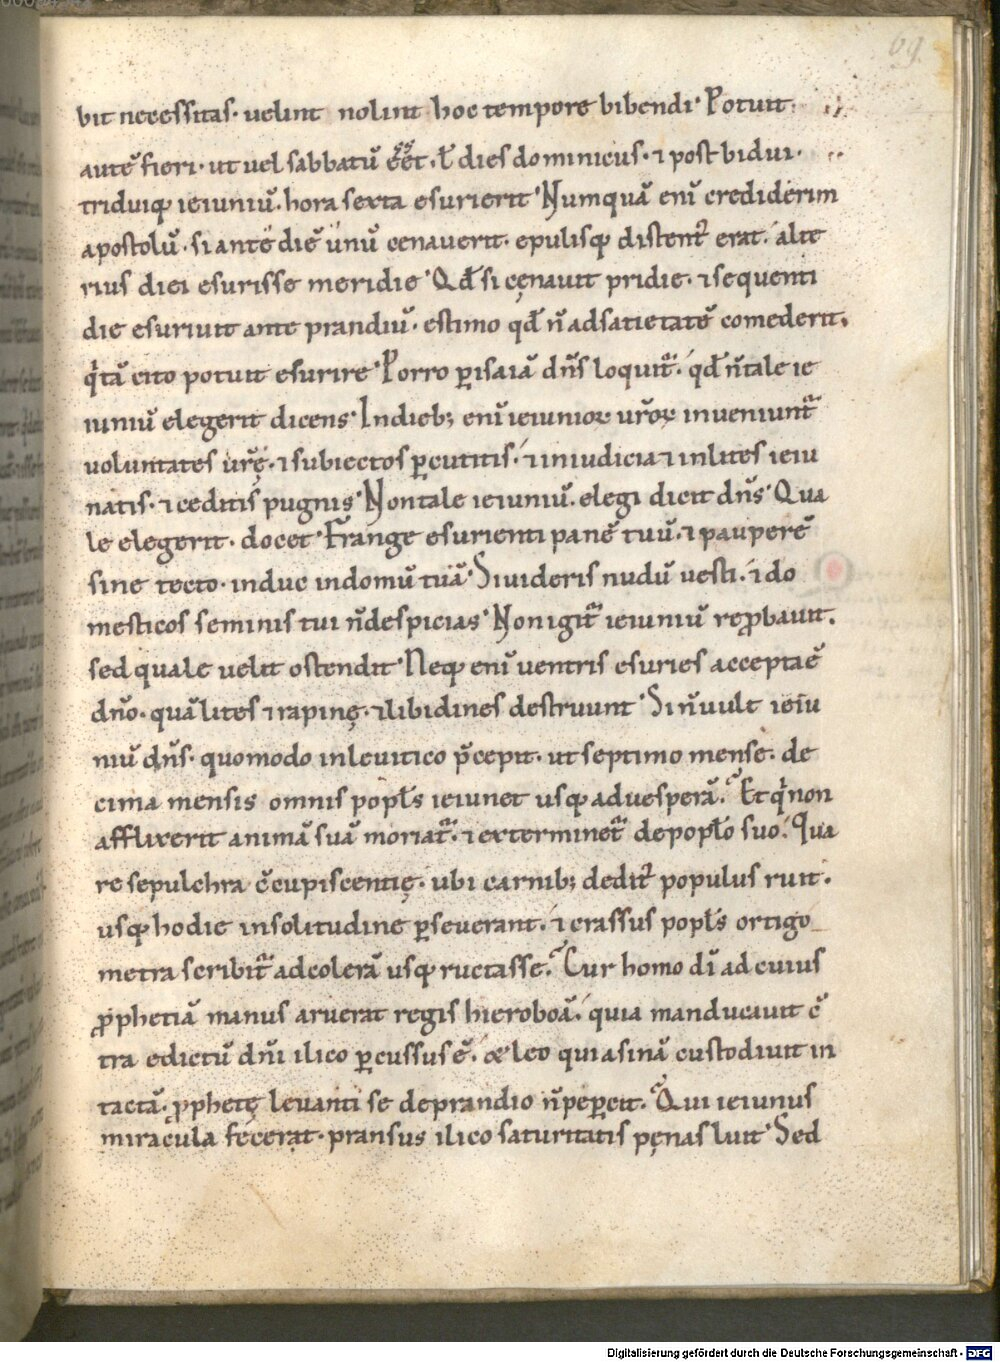 69
bit necessitas· uelint nolint hoc tempore bibendi· Potuit
autē fieri· ut uel sabbatū ēēt· ł dies dominicus· ⁊ post bidui·
triduiq; ieiuniū· hora sexta esurierit· Numquā eni crediderim
apostolū· si ante diē unū cenauerit· epulisq; distent᷒ erat· alte
rius diei esurisse meridie· Qd̄ si cęnauit pridie· ⁊ sequenti
die esuriuit ante prandiū· estimo qd̄ n̄ ad satietatē comederit·
q̇tā cito potuit esurire· Porro p̱ isaiā dn̄s loquit᷑· qd̄ n̄ tale ie
iuniū elegerit dicens· In dieb; enī ieiunioꝝ ur̄oꝝ inueniunt᷑
uoluntates ur̄ę· ⁊ subiectos p̱cutitis· ⁊ in iudicia ⁊ in lites ieiu
natis· ⁊ ceditis pugnis· Non tale ieiuniū· elegi dicit dn̄s· Qua
le elegerit· docet· Frange esurienti panē tuū· ⁊ pauperē
sine tecto· induc in domū tuā· Si uideris nudū uesti· ⁊ do
mesticos seminis tui n̄ despicias· Non igit᷑ ieiuniū rep̱bauit·
sed quale uelit ostendit· Neq; enī ventris esuries accepta ē
dn̄o· quā lites ⁊ rapinę· ⁊ libidines destruunt· Si n̄ uult ieiu
niū dn̄s· quomodo in leuitico p̄cepit· ut septimo mense· de
cima mensis omnis popłs ieiunet usq; ad uesperā· Et q̇ non
afflixerit animā suā moriat᷑· ⁊ exterminet᷑ de popło suo· Qua
re sepulchra c̄cupiscentię· ubi carnib; dedit᷒ populus ruit·
usq; hodie in solitudine p̱seuerant· ⁊ crassus popłs ortigo
metra scribit᷑ ad colerā usq; ructasse· Cur homo dī ad cuius
ꝓphetiā manus aruerat regis hieroboā· quia manducauit c̄
tra edictū dn̄i ilico p̱cussus ē· & leo qui asinā custodiuit in
tactā· ꝓphetę leuanti se de prandio n̄ pep̱cit· Qui ieiunus
miracula fecerat· pransus ilico saturitatis pęnas luit· Sed
Digitalisierung gefördert durch die Deutsche Forschungsgemeinschaft - DFG